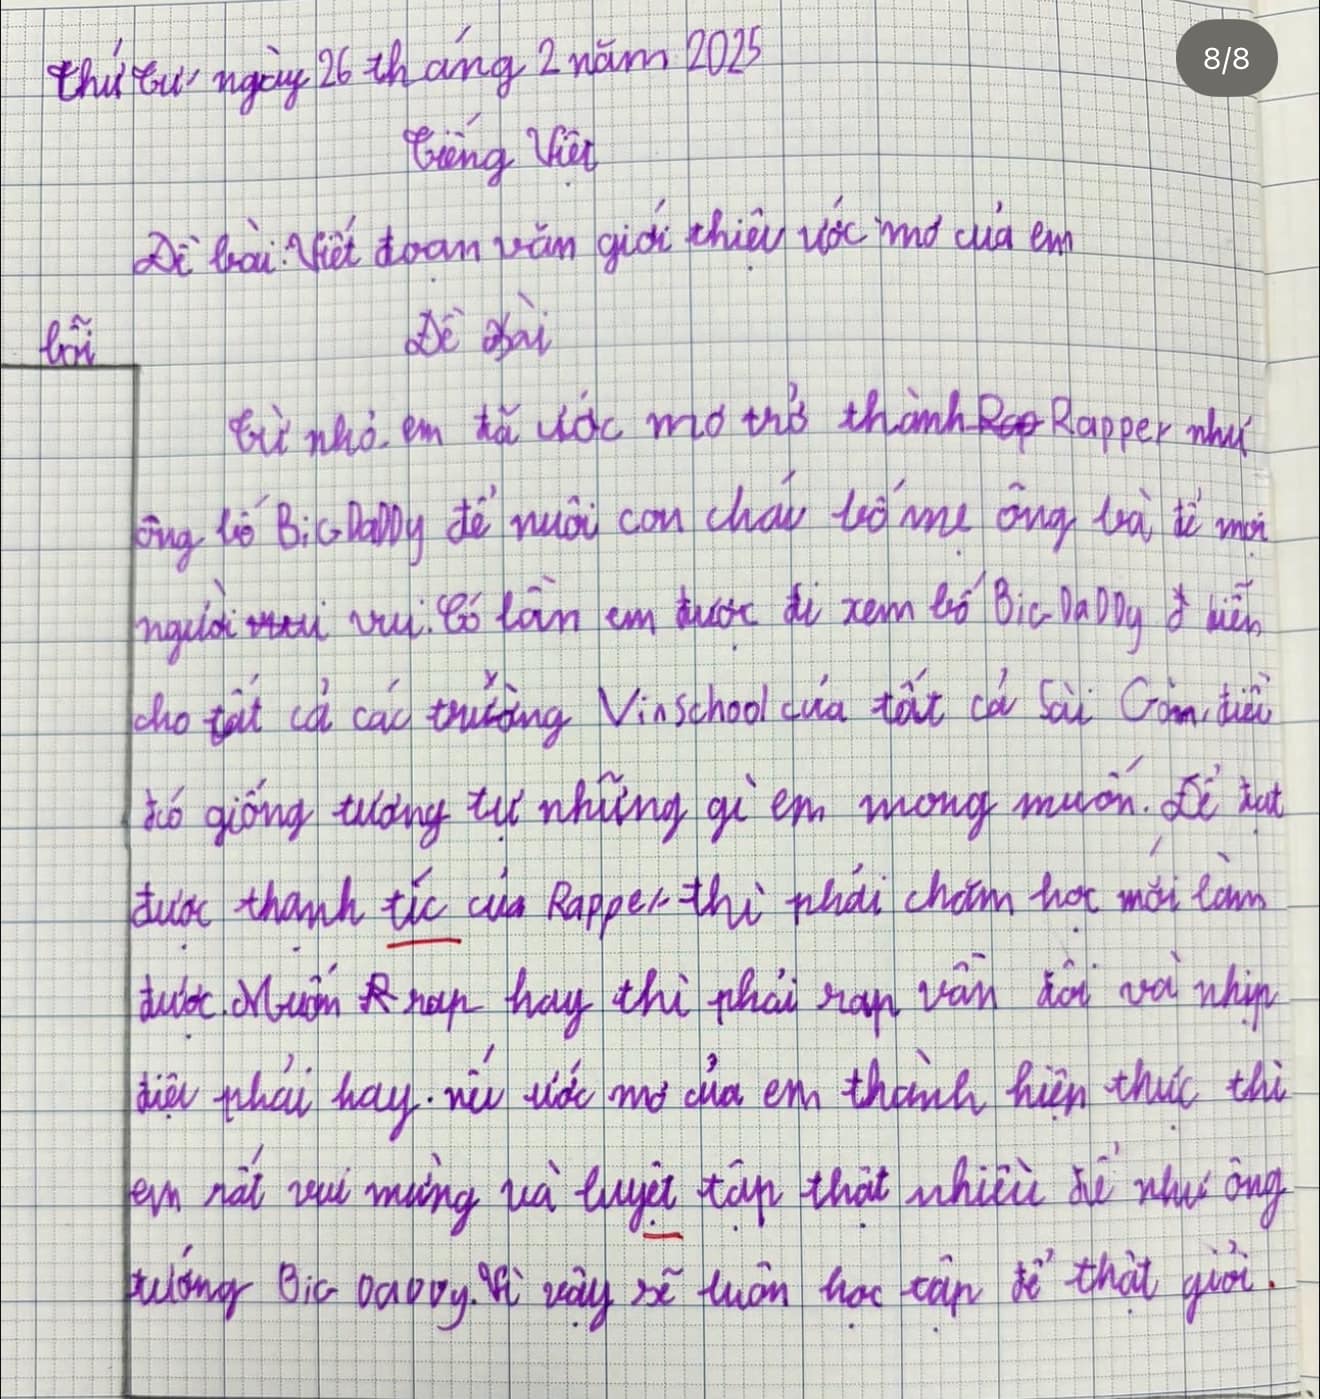 8/8
Thứ tư ngày 26 tháng 2 năm 2025
Tiếng Việt
Đề bài: Viết đoạn văn giới thiệu ước mơ của em
lỗi
Đề bài
Từ nhỏ em đã ước mơ trở thành Rap Rapper như
ông bố BiGDaDDy để nuôi con cháu bố mẹ ông bà để mọi
người vui vui. Có lần em được đi xem bố BiGDaDDy ở biễn
cho tất cả các trường Vinschool của tất cả Sài Gòn, điều
đó giống tương tự những gì em mong muốn. Để đạt
được thạnh tíc của Rapper thì phải chăm học mới làm
được. Muốn R rap hay thì phải rap vần đôi và nhịp
điệu phải hay. nếu ước mơ của em thành hiện thực thì
em rất vui mừng và luyệt tập thật nhiều để như ông
tướng BiG DaDDy. Vì vậy sẽ luôn học tập để thật giỏi.